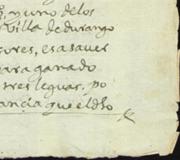 y uno de los
Villa de durango
ores, es a saver
para ganado
tres leguas, po
ancia que el dho